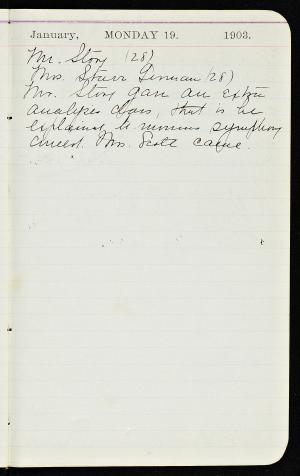 January, MONDAY 19. 1903.
Mr. Story (28)
Mrs. Starr (28)
Mr. Story gave an extra
analysis class, that is he
explained symphony
concert. Mrs. Scott came.